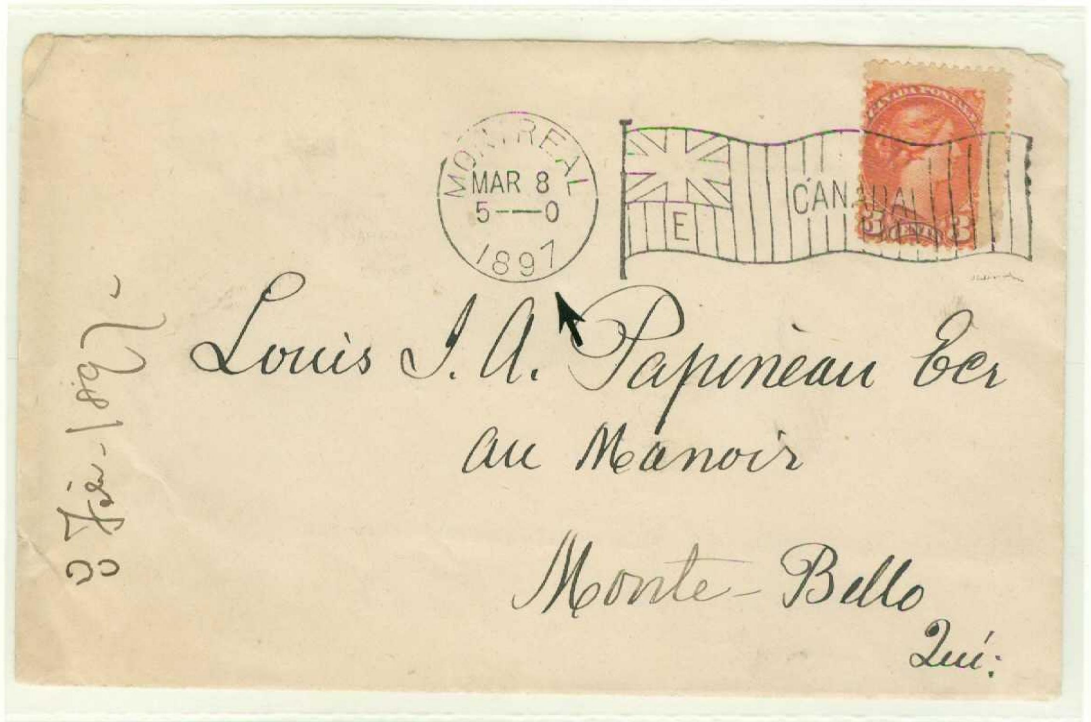 MONTREAL
MAR 8
5—0
1897
E
CANADA
CANADA POSTAGE
3 CENTS 3
Louis J. A. Papineau Ecr
au Manoir
Monte-Bello
Qué:
8 Fév - 1897 -